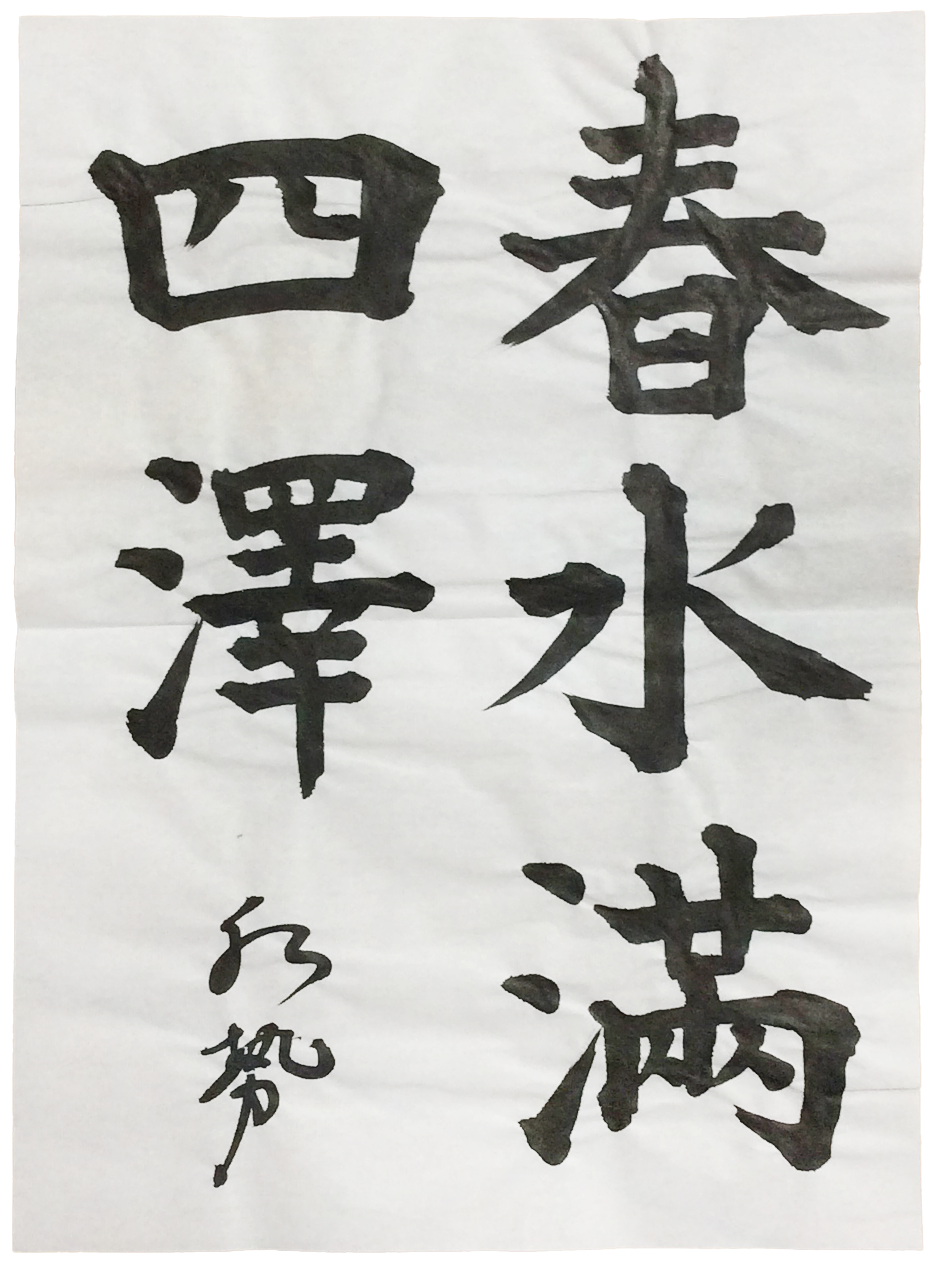 春水滿
四澤